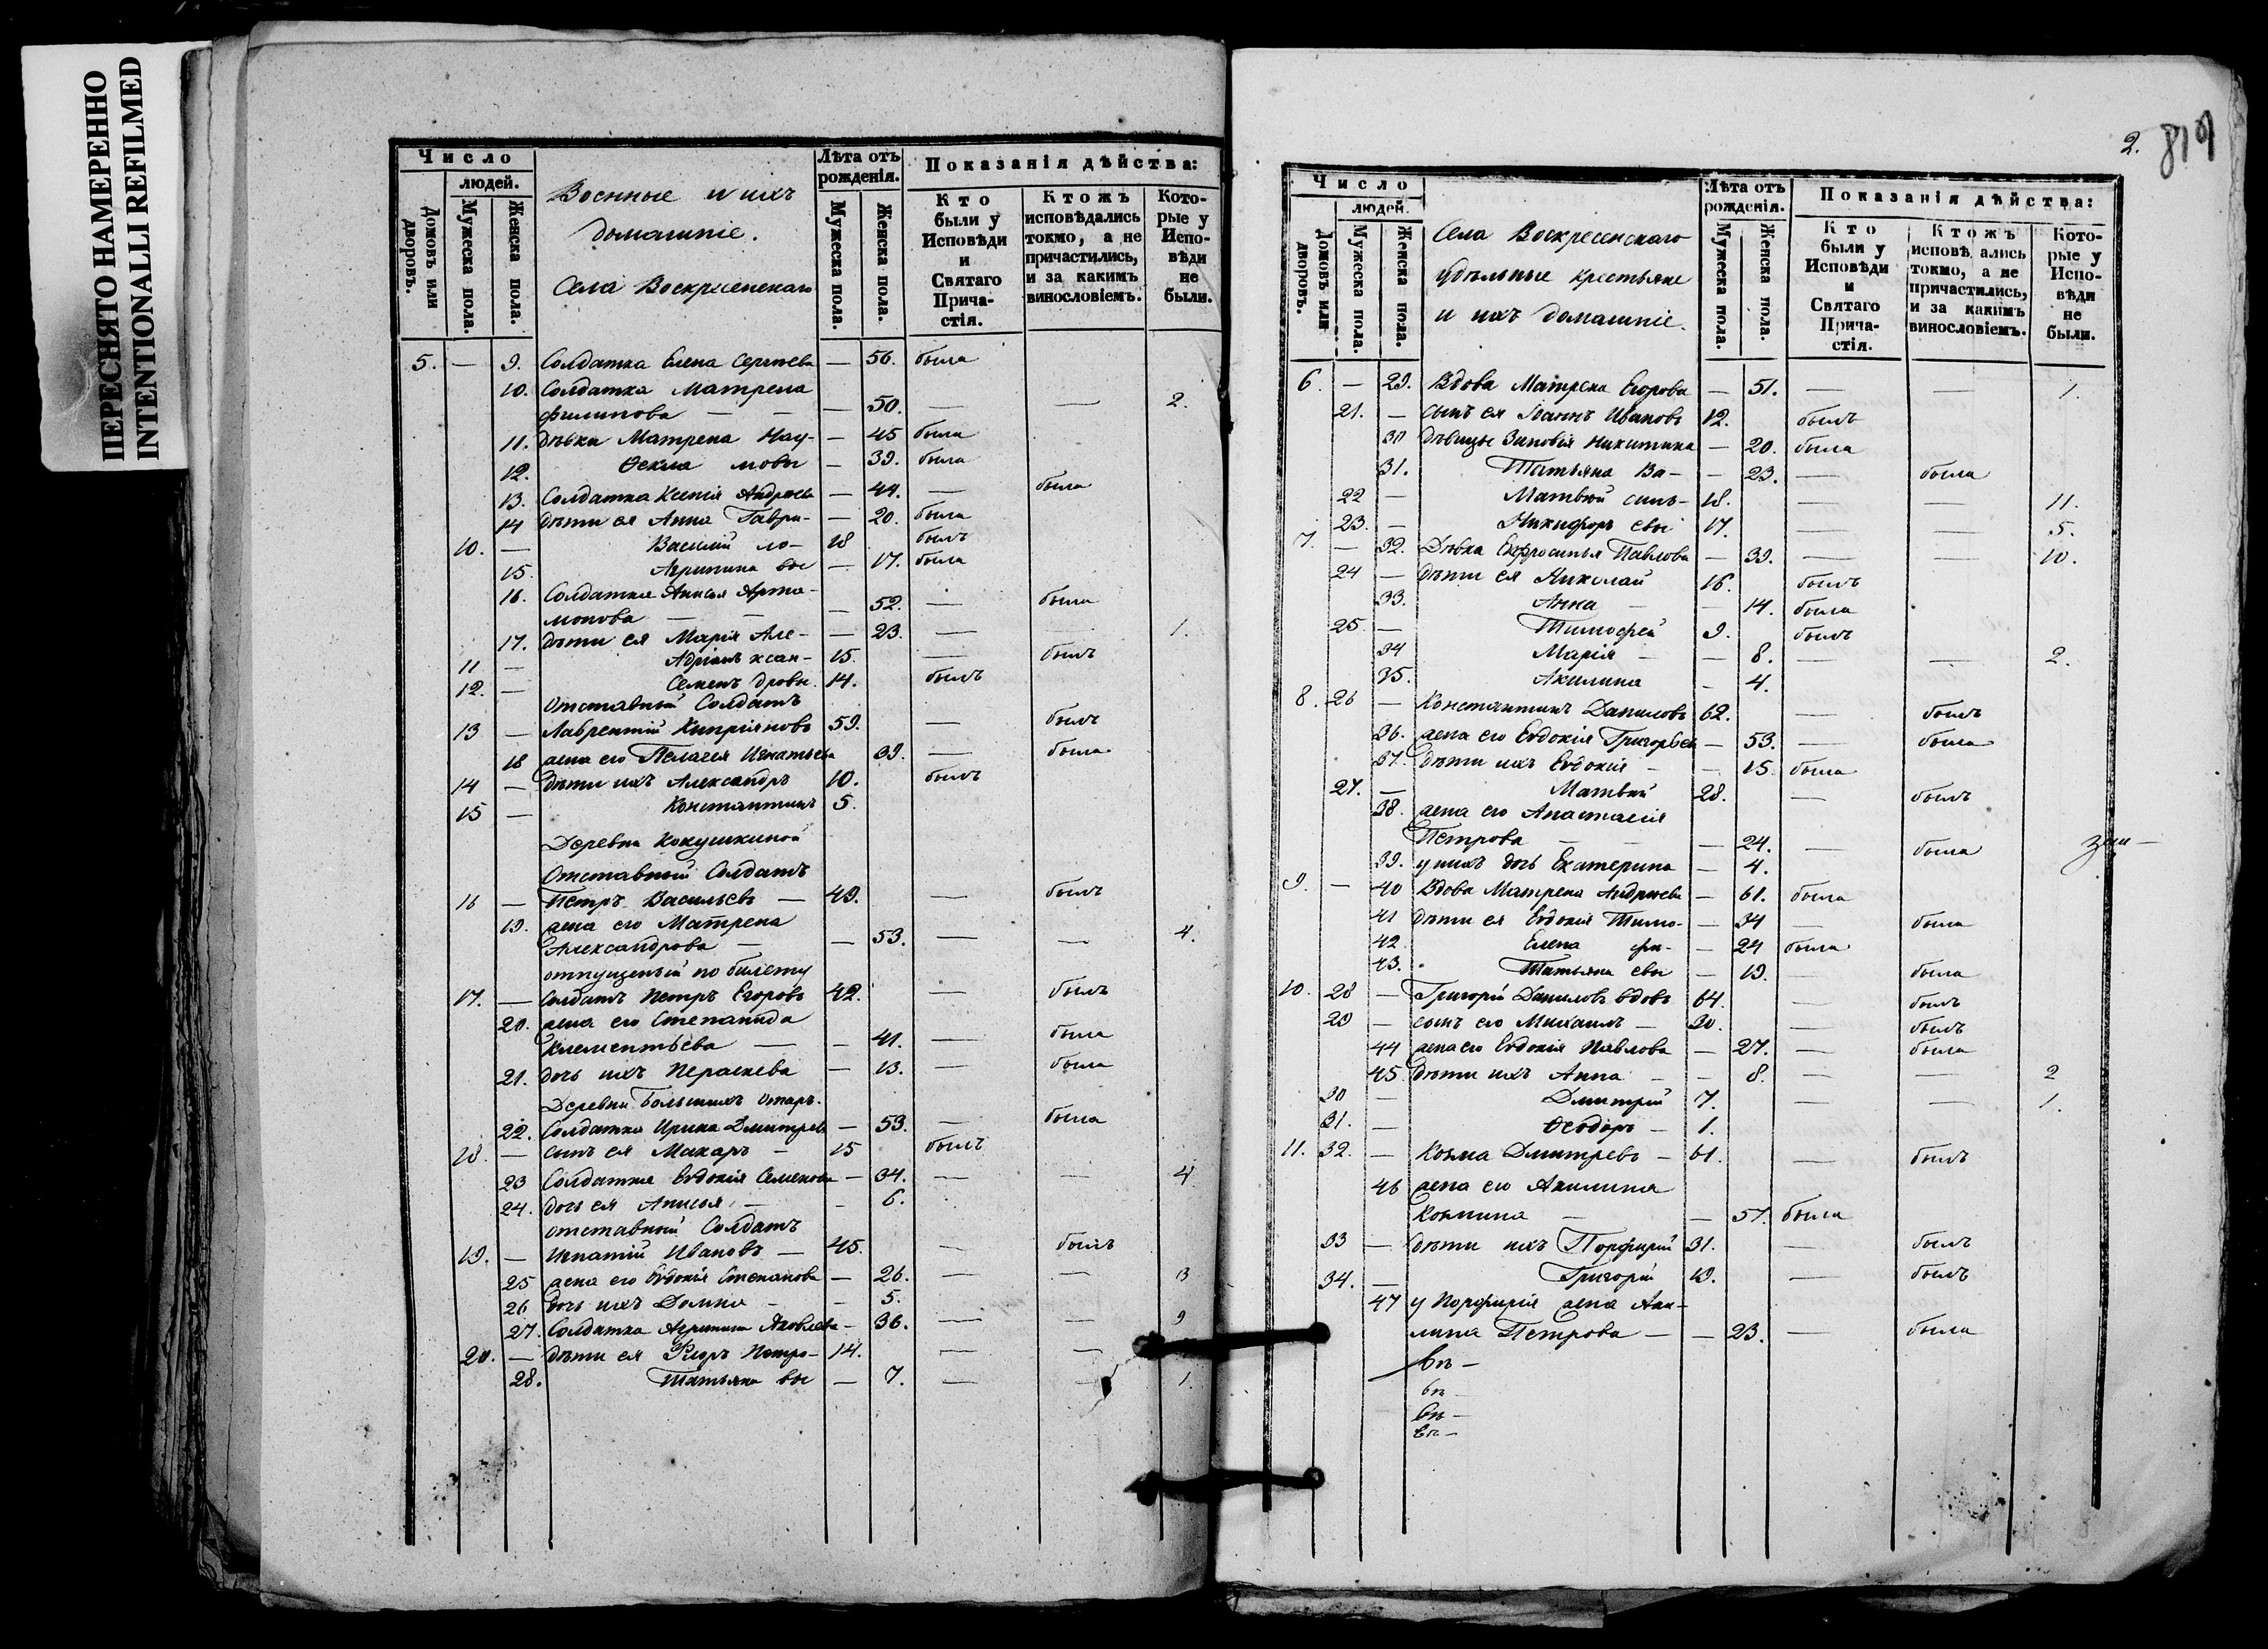 ПЕРЕСНЯТО НАМЕРЕННО
INTENTIONALLI REFILMED
Число
людей.
Домовъ или дворовъ.
Мужеска пола.
Женска пола.
Военные и ихъ
домашніе.
Села Воскресенскаго
Лѣта отъ рожденія.
Мужеска пола.
Женска пола.
Показанія дѣйства:
Кто были у Исповѣди и Святаго Причастія.
Ктожъ исповѣдались токмо, а не причастились, и за какимъ винословіемъ.
Которые у Исповѣди не были.
5. — 9. Солдатка Елена Сергѣева — 56. была
10. Солдатка Матрена
Филипова — — — 50. — — 2.
11. Дѣвки Матрена Нау- — 45 была
12. Ѳекла мовы — 39. была
13. Солдатка Ксенія Андреева — 44. — была
14 дѣти ея Анна Гаври- — 20. была
10. — Василій ло- 18 былъ
15. Агрипина вы — 17. была
16. Солдатка Анисья Арта-
монова — — — 52. — была
17. дѣти ея Марія Але- — 23. — — 1.
11 — Адріанъ ксан- 15. — былъ
12. — Семенъ дровы. 14. былъ
Отставный Солдатъ
13 — Лаврентій Кипріяновъ 59. — былъ
18 жена его Пелагея Игнатьева 39. — была
14 — Дѣти ихъ Александръ 10. былъ
15 — Константинъ 5.
Деревни Кокушкиной
Отставный Солдатъ
16 — Петръ Васильевъ — 49. — былъ
19. жена его Матрена
Александрова — — 53. — — 4.
отпущеный по билету
17. — Солдатъ Петръ Егоровъ 42. — былъ
20. жена его Степанида
Клементьева — — 41. — была
21. дочь ихъ Параскева — 13. — была
Деревни Большихъ Отар.
22. Солдатка Ирина Дмитрева — 53. — была
18. — сынъ ея Макаръ — 15 былъ
23 Солдатка Евдокія Семенова — 34. — — 4
24. дочь ея Анисья — — 6.
отставный Солдатъ
19. — Игнатій Ивановъ — 45. — былъ
25 жена его Евдокія Степанова — 26. — — 3
26 дочь ихъ Домна — — 5.
27. Солдатка Агрипина Яковлева — 36. — — 9
20. — дѣти ея Флоръ Петро- 14. — —
28. Татьяна вы — 7. — — 1.
2. 819
Число
людей.
Домовъ или дворовъ.
Мужеска пола.
Женска пола.
Села Воскресенскаго
удѣльные крестьяне
и ихъ домашніе.
Лѣта отъ рожденія.
Мужеска пола.
Женска пола.
Показанія дѣйства:
Кто были у Исповѣди и Святаго Причастія.
Ктожъ исповѣ ались токмо, а не причастились, и за какимъ винословіемъ.
Которые у Исповѣди не были.
6. — 29. Вдова Матрена Егорова — 51. — — 1.
21. — сынъ ея Іоаннъ Ивановъ 12. былъ
30 дѣвицы Зиновія Никитина — 20. была
31. Татьяна Ва- — 23. — была
22 — Матвѣй силь- 18. — — 11.
23. — Никифоръ евы 17. — — 5.
7. — 32. Дѣвка Ефросинья Павлова — 39. — — 10.
24 — дѣти ея Николай 16. былъ
33. Анна — — 14. была
25. — Тимофей 9. былъ
34 Марія — — 8. — — 2.
35. Акилина — 4.
8. 26 — Константинъ Даниловъ 62. — былъ
36. жена его Евдокія Григорьева — 53. — была
37. Дѣти ихъ Евдокія — — 15 была
27. — Матвѣй 28. — былъ
38. жена его Анастасія
Петрова — — — 24. — была
39. у нихъ дочь Екатерина — 4.
9. — 40 Вдова Матрена Андреева — 61. была
41 дѣти ея Евдокія Тимо- — 34 — была
42. Елена фи- — 24 была
43. Татьяна евы — 19. — была
10. 28 — Григорій Даниловъ вдовъ 64. — былъ
29 — сынъ его Михаилъ — 30. — былъ
44 жена его Евдокія Павлова — 27. — была
45. Дѣти ихъ Анна — — 8. — — 2
30 — Дмитрій 7. — — 1.
31. — Ѳеодоръ — 1.
11. 32. — Козма Дмитревъ — 61. — былъ
46 жена его Акилина
Козмина — — 57. была
33 — дѣти ихъ Порфирій 31. — былъ
34. — Григорій 19. — былъ
47 у Порфирія жена Аки-
лина Петрова — — 23. — была